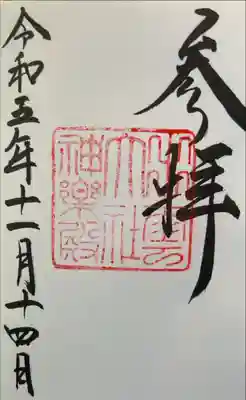 参拝
出雲
大社
神楽殿
令和五年十一月十四日